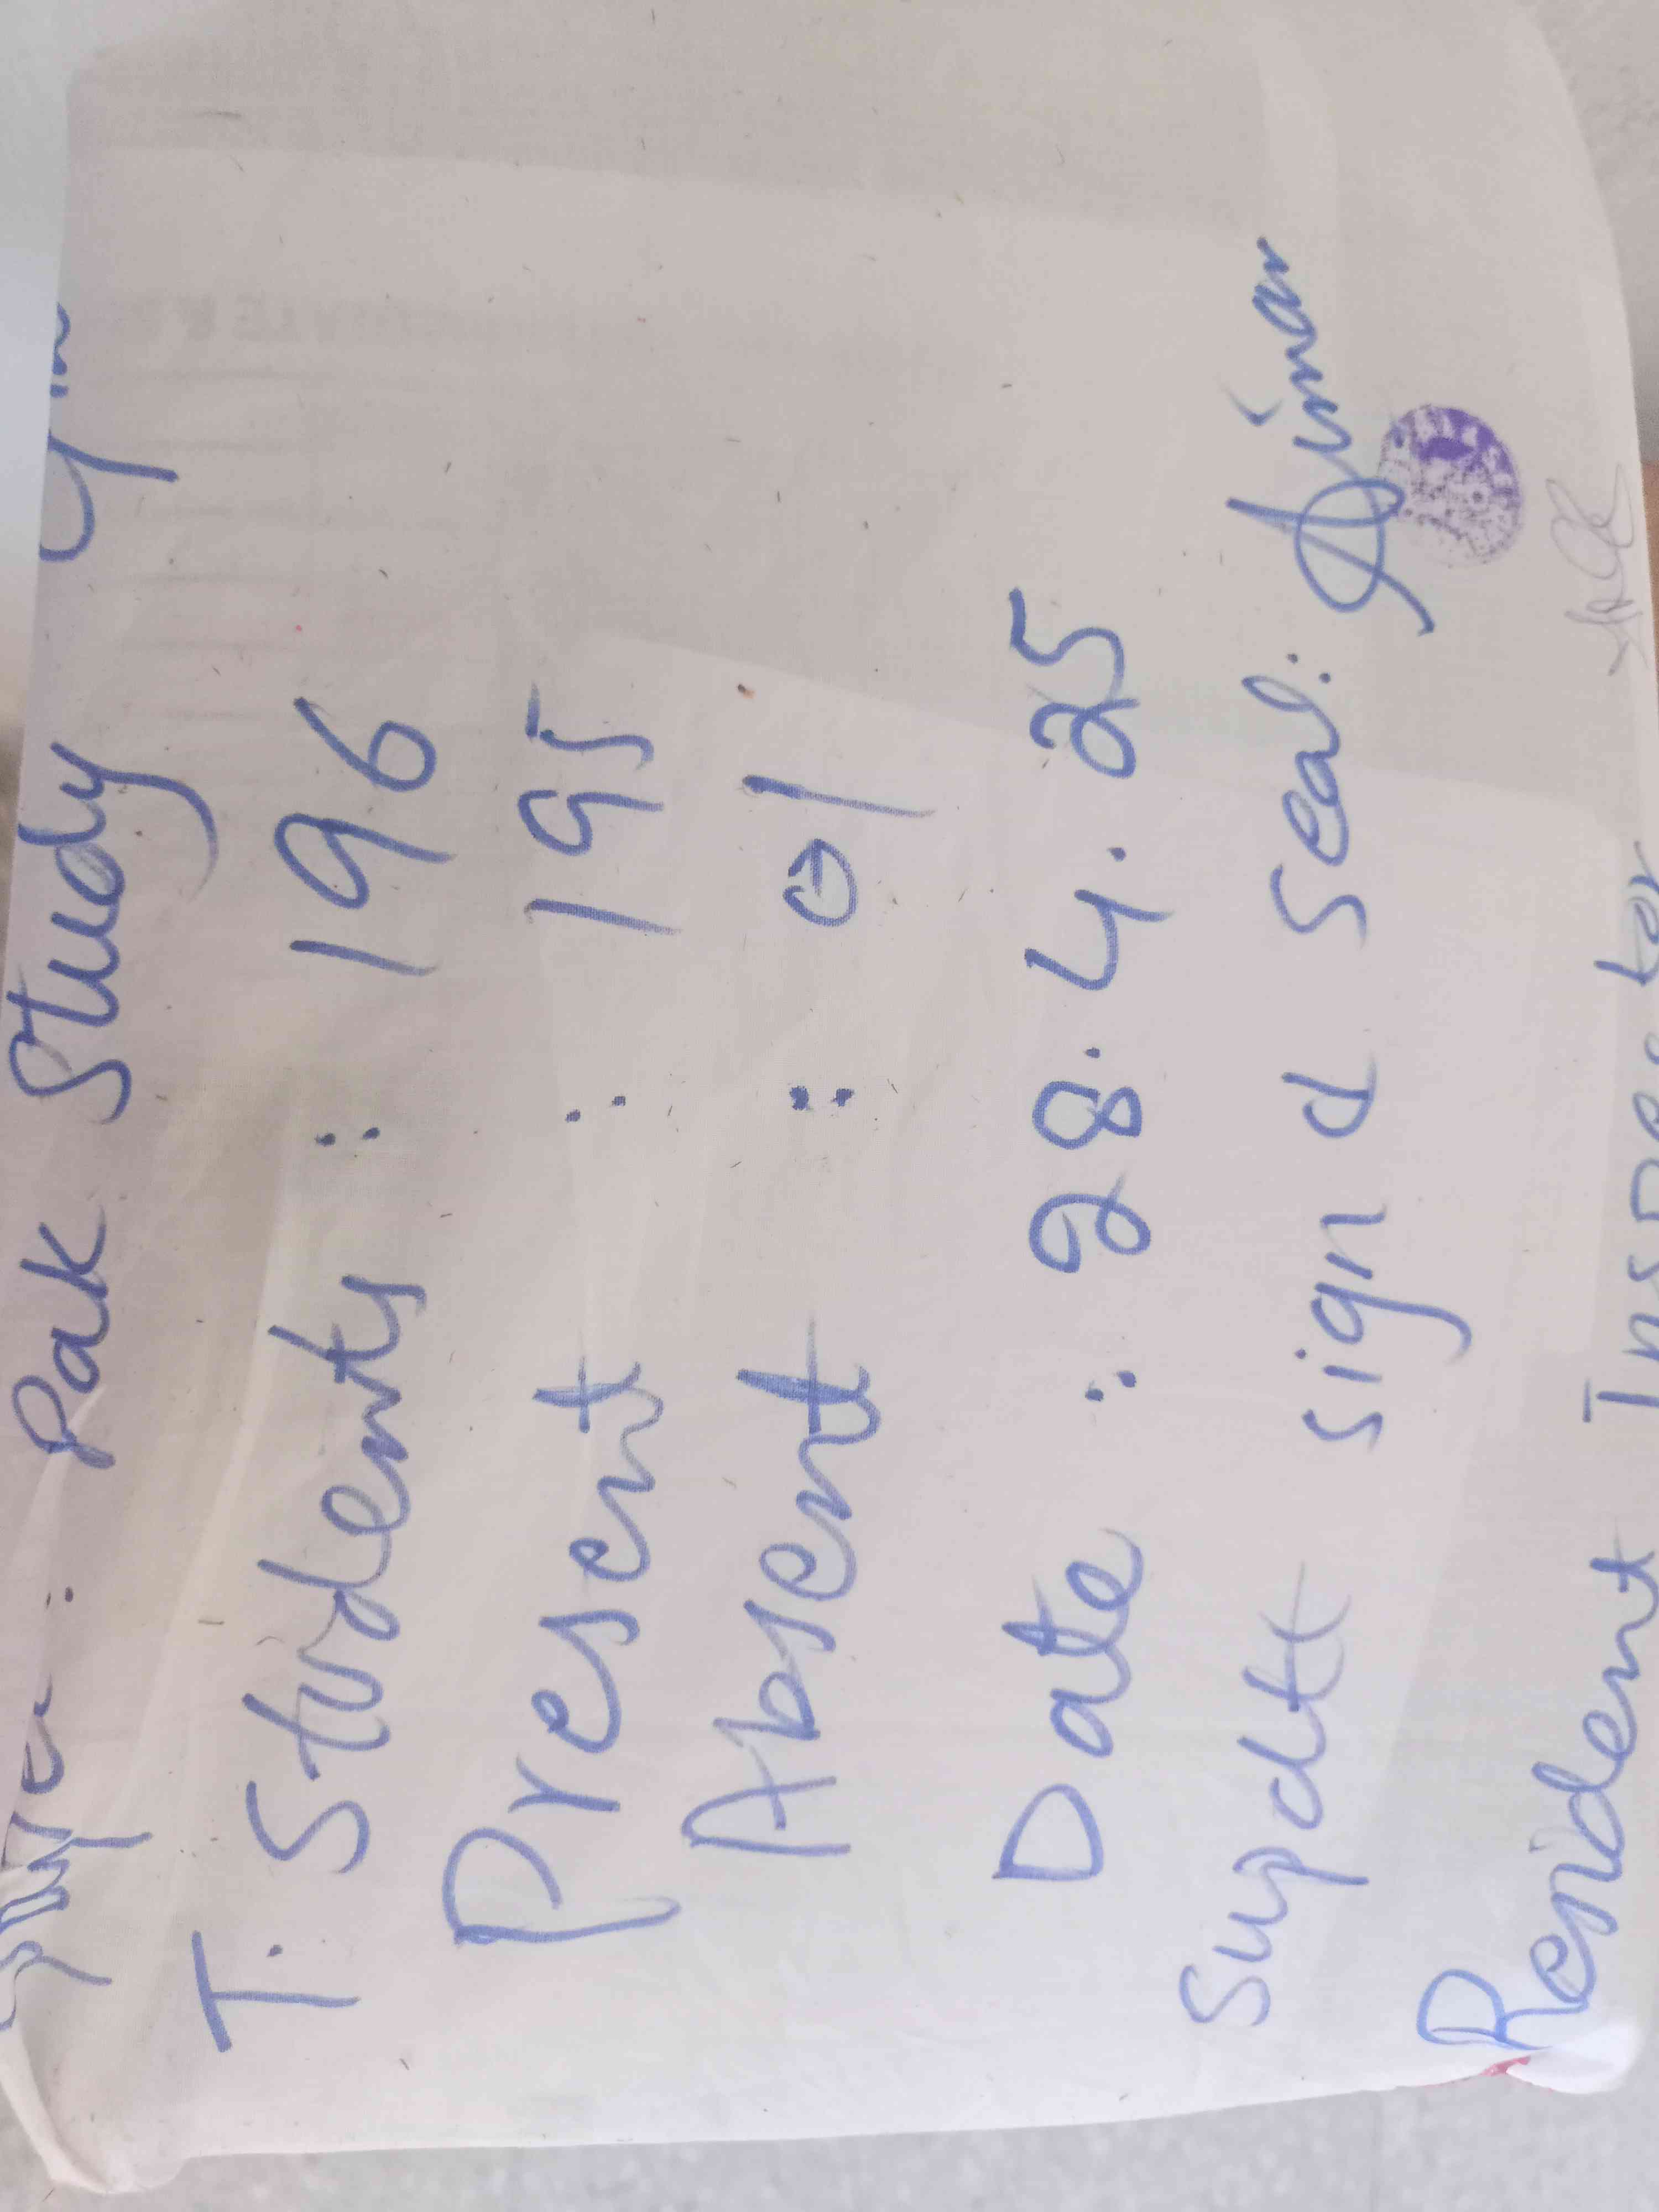 Paper : Pak Study
T. Students : 196
Present : 195
Absent : 01
Date : 28.4.25
Supdtt sign d seal: Aiman
Resident Inspector